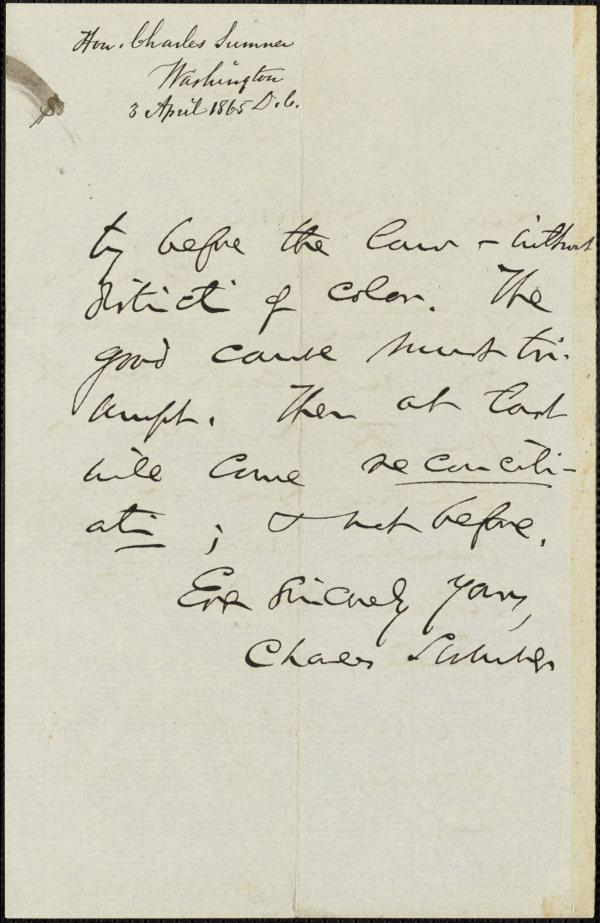 Hon. Charles Sumner
Washington
3 April 1865 D.C.
ty before the law – without
distinction of color. The
good cause must tri-
umph. Then at last
will come reconcili-
ation; & not before.
Ever sincerely yours,
Charles Sumner